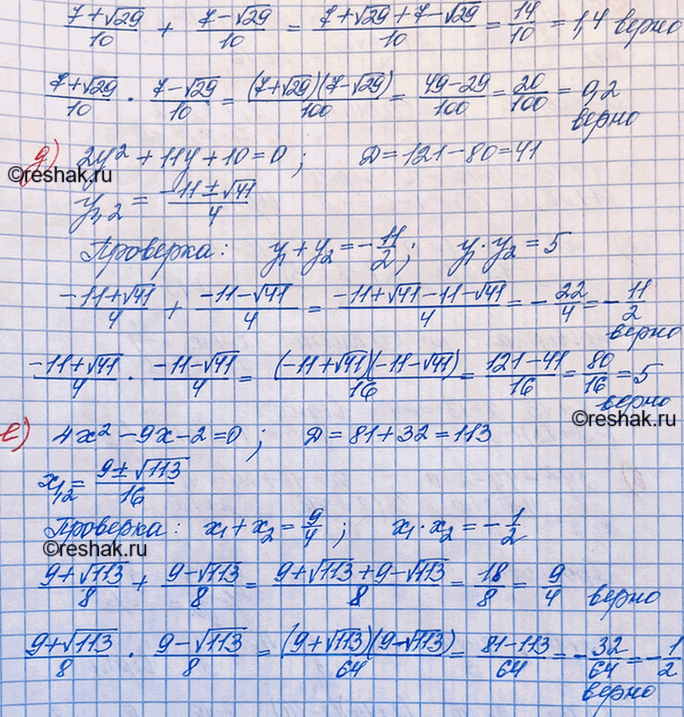 (7+√29)/10 + (7-√29)/10 = (7+√29+7-√29)/10 = 14/10 = 1,4 верно
(7+√29)/10 · (7-√29)/10 = ((7+√29)(7-√29))/100 = (49-29)/100 = 20/100 = 0,2
верно
д) 2y² + 11y + 10 = 0 ; D = 121 - 80 = 41
©reshak.ru
y₁,₂ = (-11±√41)/4
Проверка: y₁ + y₂ = -11/2 ; y₁ · y₂ = 5
(-11+√41)/4 + (-11-√41)/4 = (-11+√41-11-√41)/4 = -22/4 = -11/2
верно
(-11+√41)/4 · (-11-√41)/4 = ((-11+√41)(-11-√41))/16 = (121-41)/16 = 80/16 = 5
верно
©reshak.ru
е) 4x² - 9x - 2 = 0 ; D = 81 + 32 = 113
x₁,₂ = (9±√113)/16
Проверка: x₁ + x₂ = 9/4 ; x₁ · x₂ = -1/2
©reshak.ru
(9+√113)/8 + (9-√113)/8 = (9+√113+9-√113)/8 = 18/8 = 9/4 верно
(9+√113)/8 · (9-√113)/8 = ((9+√113)(9-√113))/64 = (81-113)/64 = -32/64 = -1/2
верно